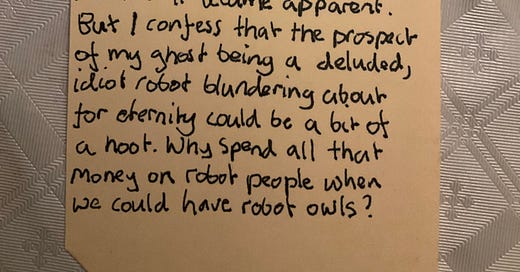 apparent.
But I confess that the prospect
of my ghost being a deluded,
idiot robot blundering about
for eternity could be a bit of
a hoot. Why spend all that
money on robot people when
we could have robot owls?